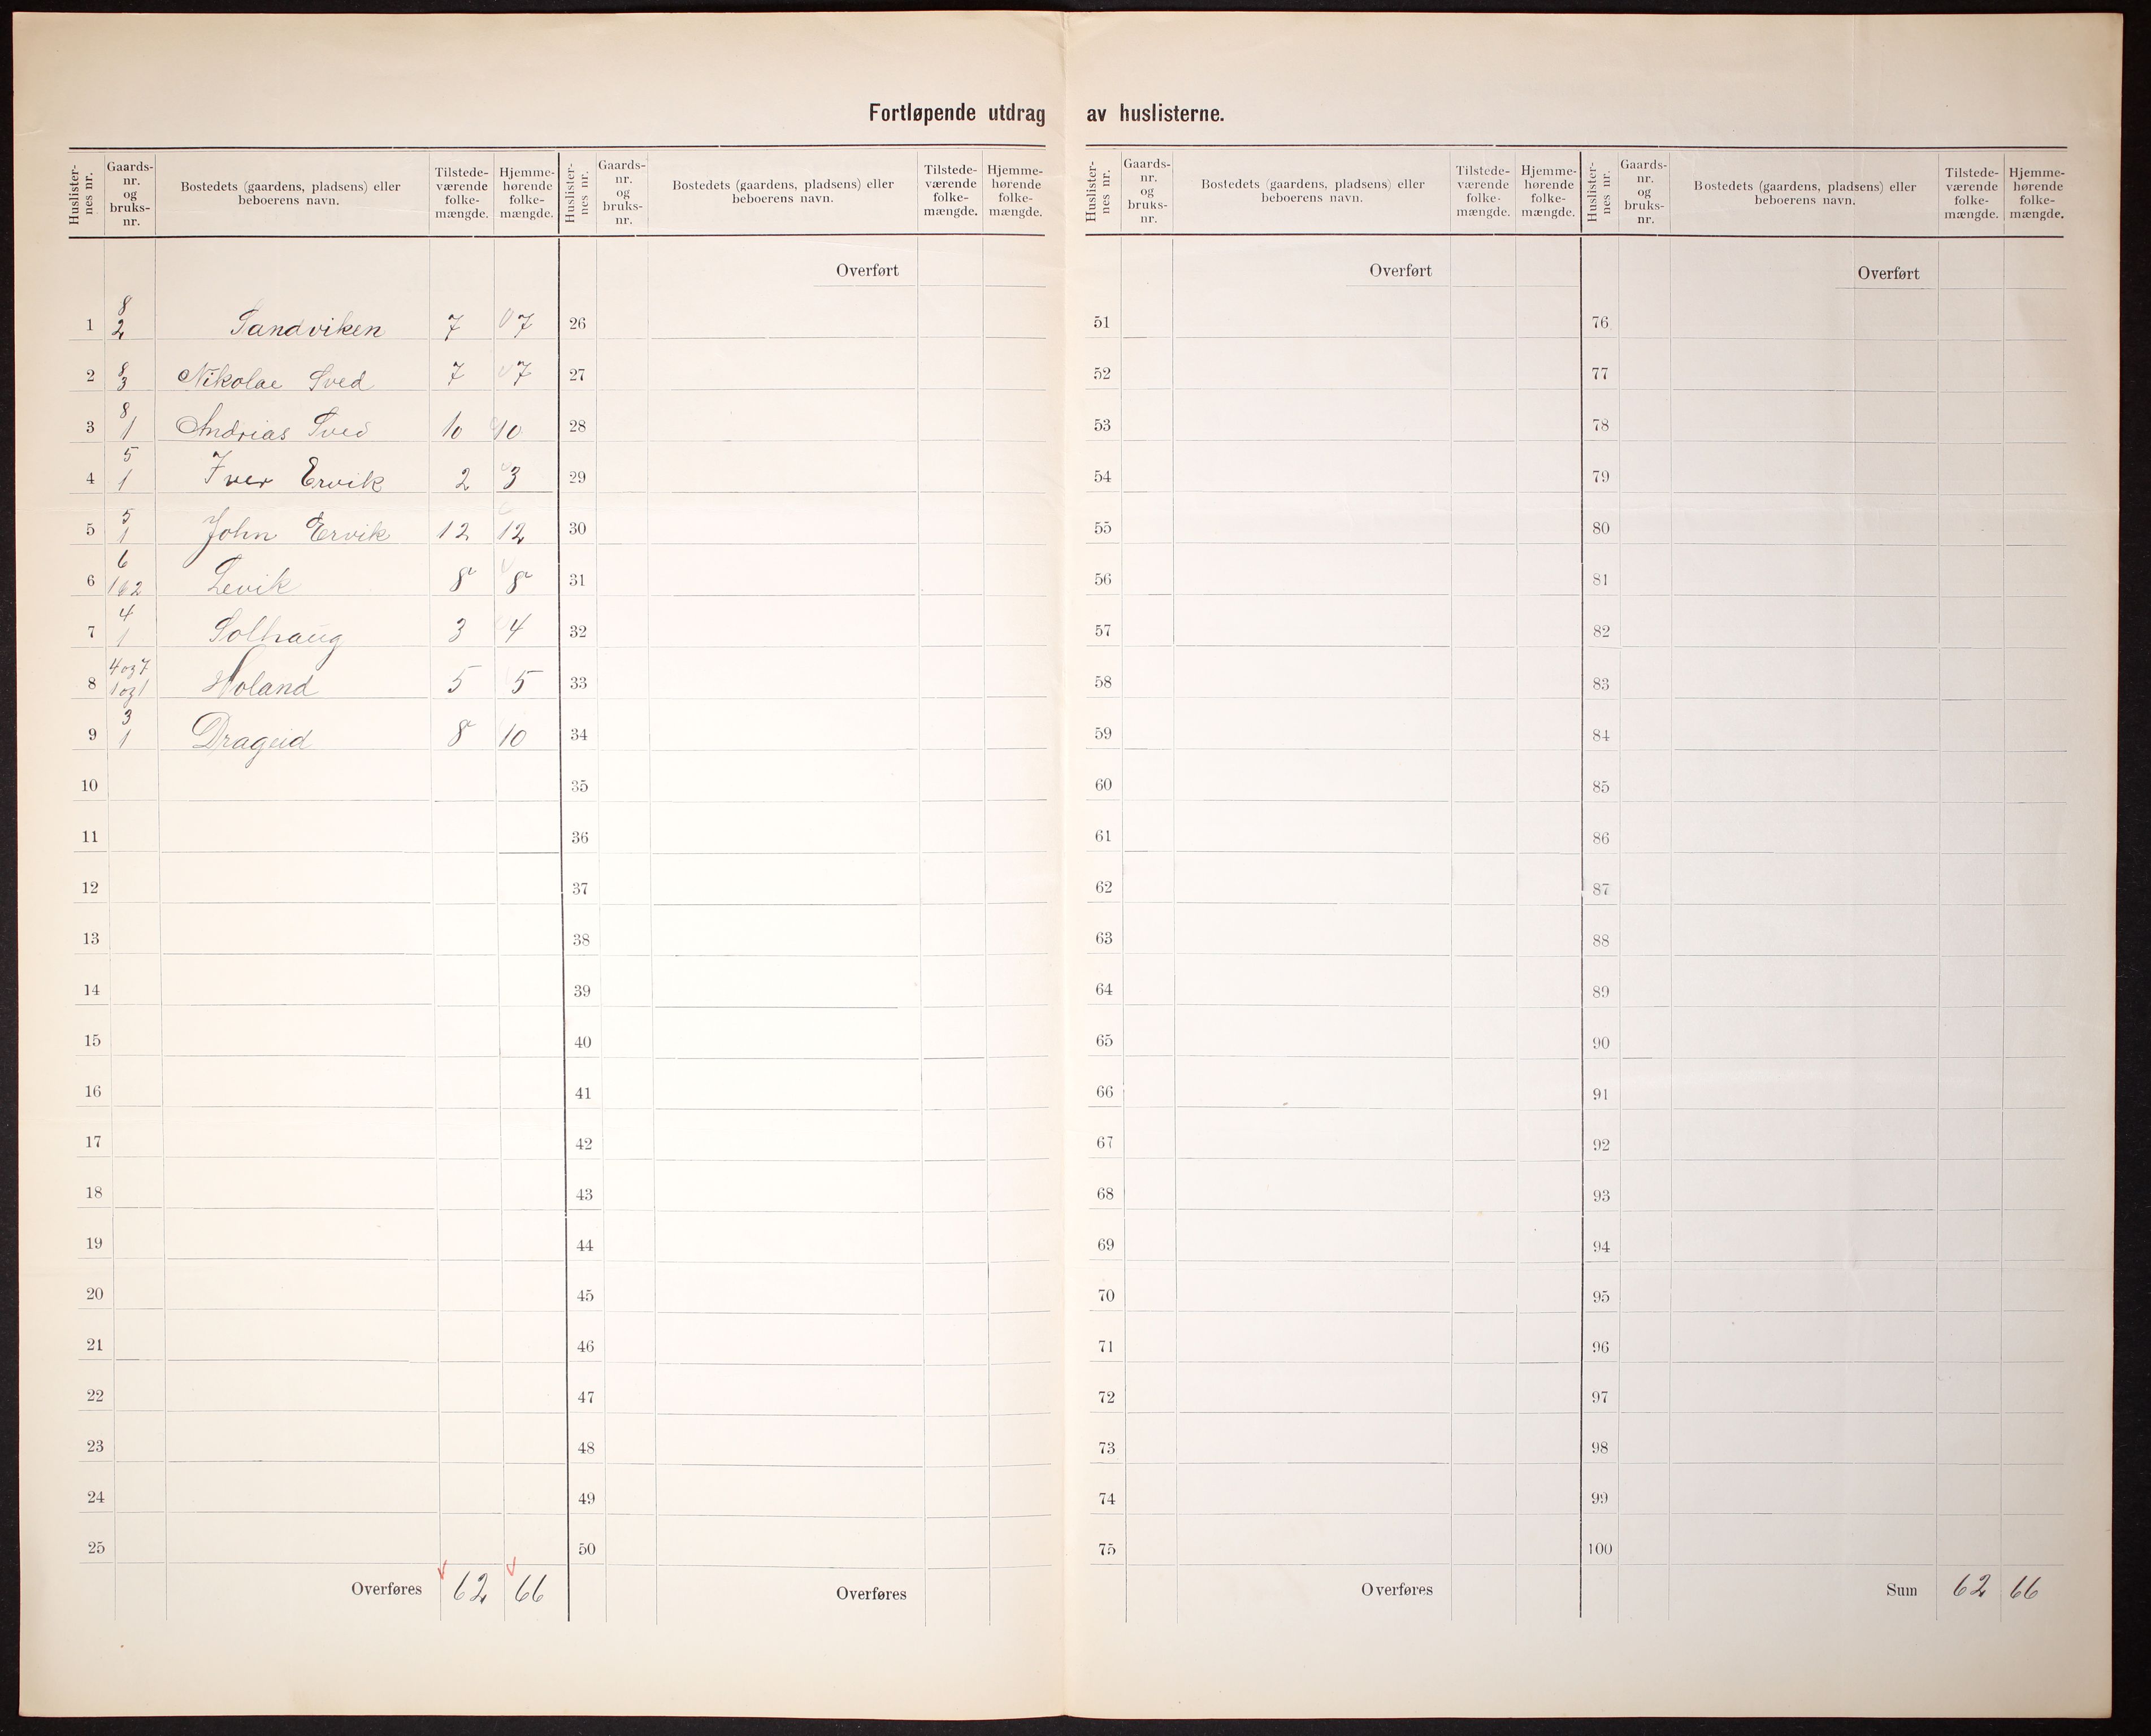 Fortløpende utdrag av huslisterne.
Huslister-nes nr. Gaards-nr. og bruks-nr. Bostedets (gaardens, pladsens) eller beboerens navn. Tilstede-værende folke-mængde. Hjemme-hørende folke-mængde.
Huslister-nes nr. Gaards-nr. og bruks-nr. Bostedets (gaardens, pladsens) eller beboerens navn. Tilstede-værende folke-mængde. Hjemme-hørende folke-mængde.
Huslister-nes nr. Gaards-nr. og bruks-nr. Bostedets (gaardens, pladsens) eller beboerens navn. Tilstede-værende folke-mængde. Hjemme-hørende folke-mængde.
Huslister-nes nr. Gaards-nr. og bruks-nr. Bostedets (gaardens, pladsens) eller beboerens navn. Tilstede-værende folke-mængde. Hjemme-hørende folke-mængde.
Overført Overført Overført
1 8/2 Sandviken 7 7 26 51 76
2 8/3 Nikolae Sved 7 7 27 52 77
3 8/1 Andrias Sved 10 10 28 53 78
4 5/1 Iver Ervik 2 3 29 54 79
5 5/1 John Ervik 12 12 30 55 80
6 6/1&2 Levik 8 8 31 56 81
7 4/1 Solhaug 3 4 32 57 82
8 4 og 7/1 og 1 Holand 5 5 33 58 83
9 3/1 Drageid 8 10 34 59 84
10 35 60 85
11 36 61 86
12 37 62 87
13 38 63 88
14 39 64 89
15 40 65 90
16 41 66 91
17 42 67 92
18 43 68 93
19 44 69 94
20 45 70 95
21 46 71 96
22 47 72 97
23 48 73 98
24 49 74 99
25 50 75 100
Overføres 62 66 Overføres Overføres Sum 62 66